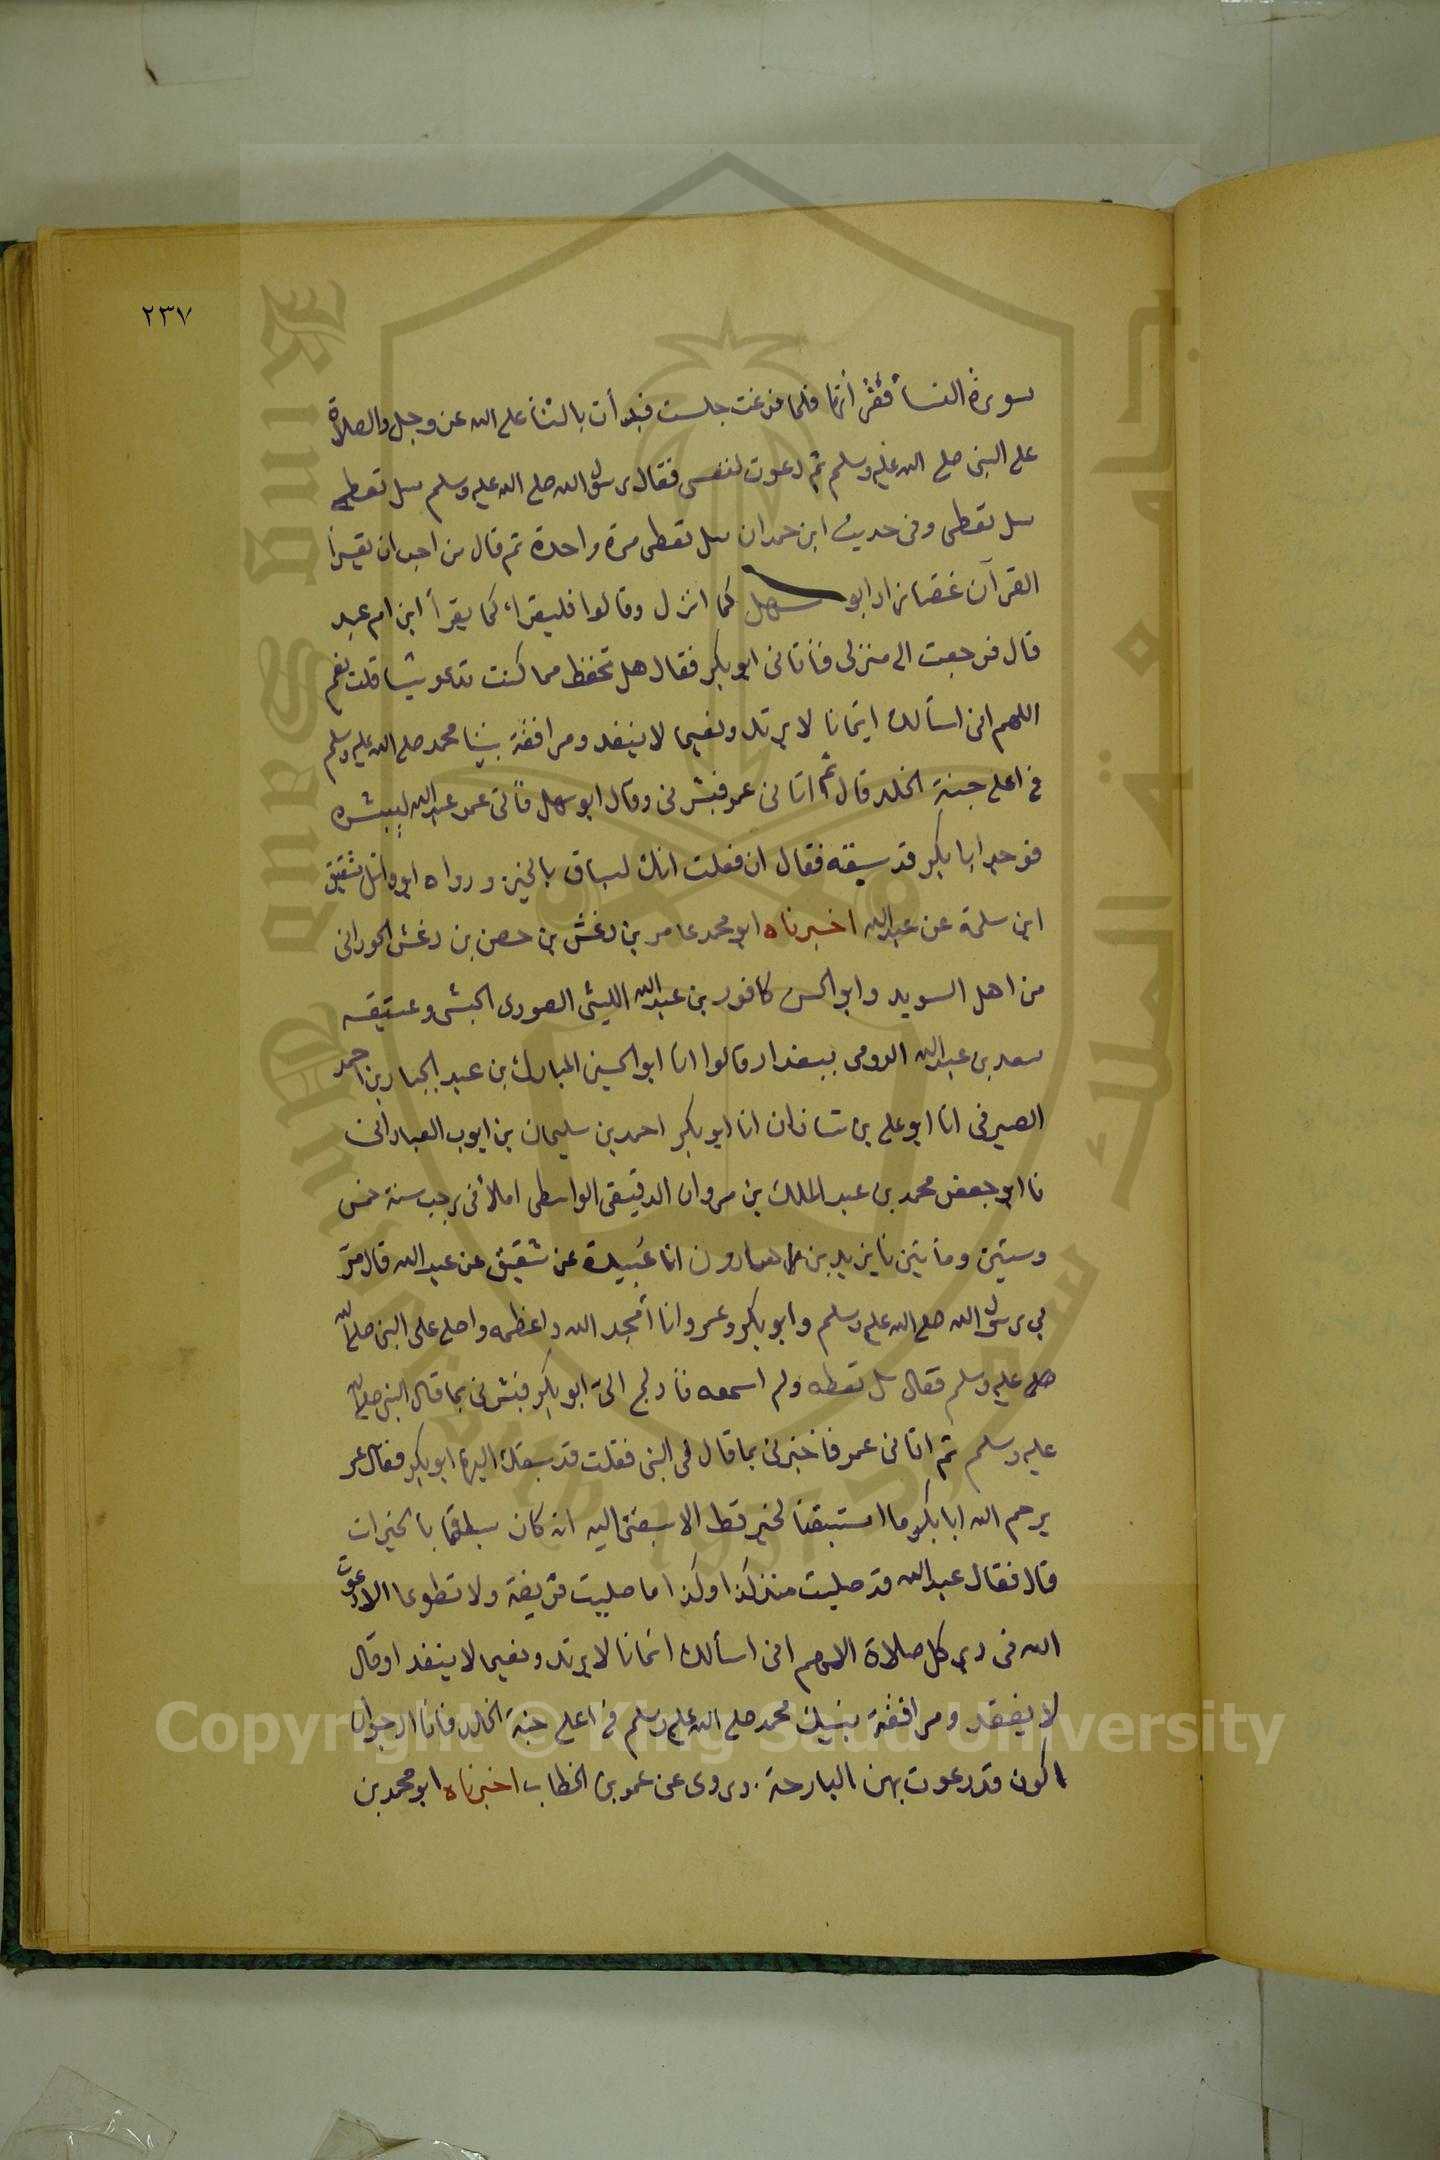 ٢٣٧
سورة النسا فقرأتها فلما فرغت جلست فبدأت بالثنا على الله عز وجل والصلاة
على النبى صلى الله عليه وسلم ثم دعوت لنفسى فقال رسول الله صلى الله عليه وسلم سل تعطه
سل تعطى وفى حديث ابن حمدان سل تعطى مرة واحدة ثم قال من احب ان يقرأ
القرآن غضا زاد ابو سهل كما انزل وقالوا فليقراء كما يقرأ ابن ام عبد
قال فرجعت الى منزلى فأتانى ابو بكر فقال هل تحفظ مما كنت تدعو شيا قلت نعم
اللهم انى اسألك ايمانا لا يرتد ونعيما لا ينفد ومرافقة نبينا محمد صلى الله عليه وسلم
فى اعلى جنة الخلد قال ثم اتانى عمر فبشرنى وقال ابو سهل فأتى عمر عبد الله ليبشره
فوجد ابا بكر قد سبقه فقال ان فعلت انك لسباق بالخير ورواه ابو وائل شقيق
ابن سلمة عن عبد الله اخبرناه ابو محمد عامر بن دغش بن حصن بن دغش الحورانى
من اهل السويد وابو الحسن كافور بن عبد الله الليثى الصورى الحبشى وعتيقه
سعد بن عبد الله الرومى ببغداد قالوا انا ابو الحسين المبارك بن عبد الجبار بن احمد
الصيرفى انا ابو على بن شاذان انا ابو بكر احمد بن سليمان بن ايوب العبادانى
نا ابو جعفر محمد بن عبد الملك بن مروان الدقيقى الواسطى املأ فى رجب سنة خمس
وستين ومأتين نا يزيد بن هارون انا عبيدة عن شقيق عن عبد الله قال مر
بي رسول الله صلى الله عليه وسلم وابو بكر وعمر وانا أمجد الله واعظمه واصلى على النبى صلى الله
صلى عليه وسلم فقال سل تعطه ولم اسمعه فأدلج الىّ ابو بكر فبشرنى بما قال النبى صلى الله
عليه وسلم ثم اتانى عمر فاخبرنى بما قال لى النبى فقلت قد سبقك اليها ابو بكر فقال عمر
يرحم الله ابا بكر ما استبقنا لخير قط الا سبقنى اليه انه كان سباقا بالخيرات
قال فقال عبد الله قد صليت منذ كذا وكذا ما صليت فريضة ولا تطوعا الا دعوت
الله فى دبر كل صلاة اللهم انى اسألك ايمانا لا يرتد ونعيما لا ينفد او قال
لا يفقد ومرافقة نبيك محمد صلى الله عليه وسلم فى اعلى جنة الخلد فانا ارجوان
اكون قد دعوت بهن البارحة . وروى عن عمر بن الخطاب اخبرناه ابو محمد بن
جامعة الملك سعود
King Saud University
1957
Copyright © King Saud University